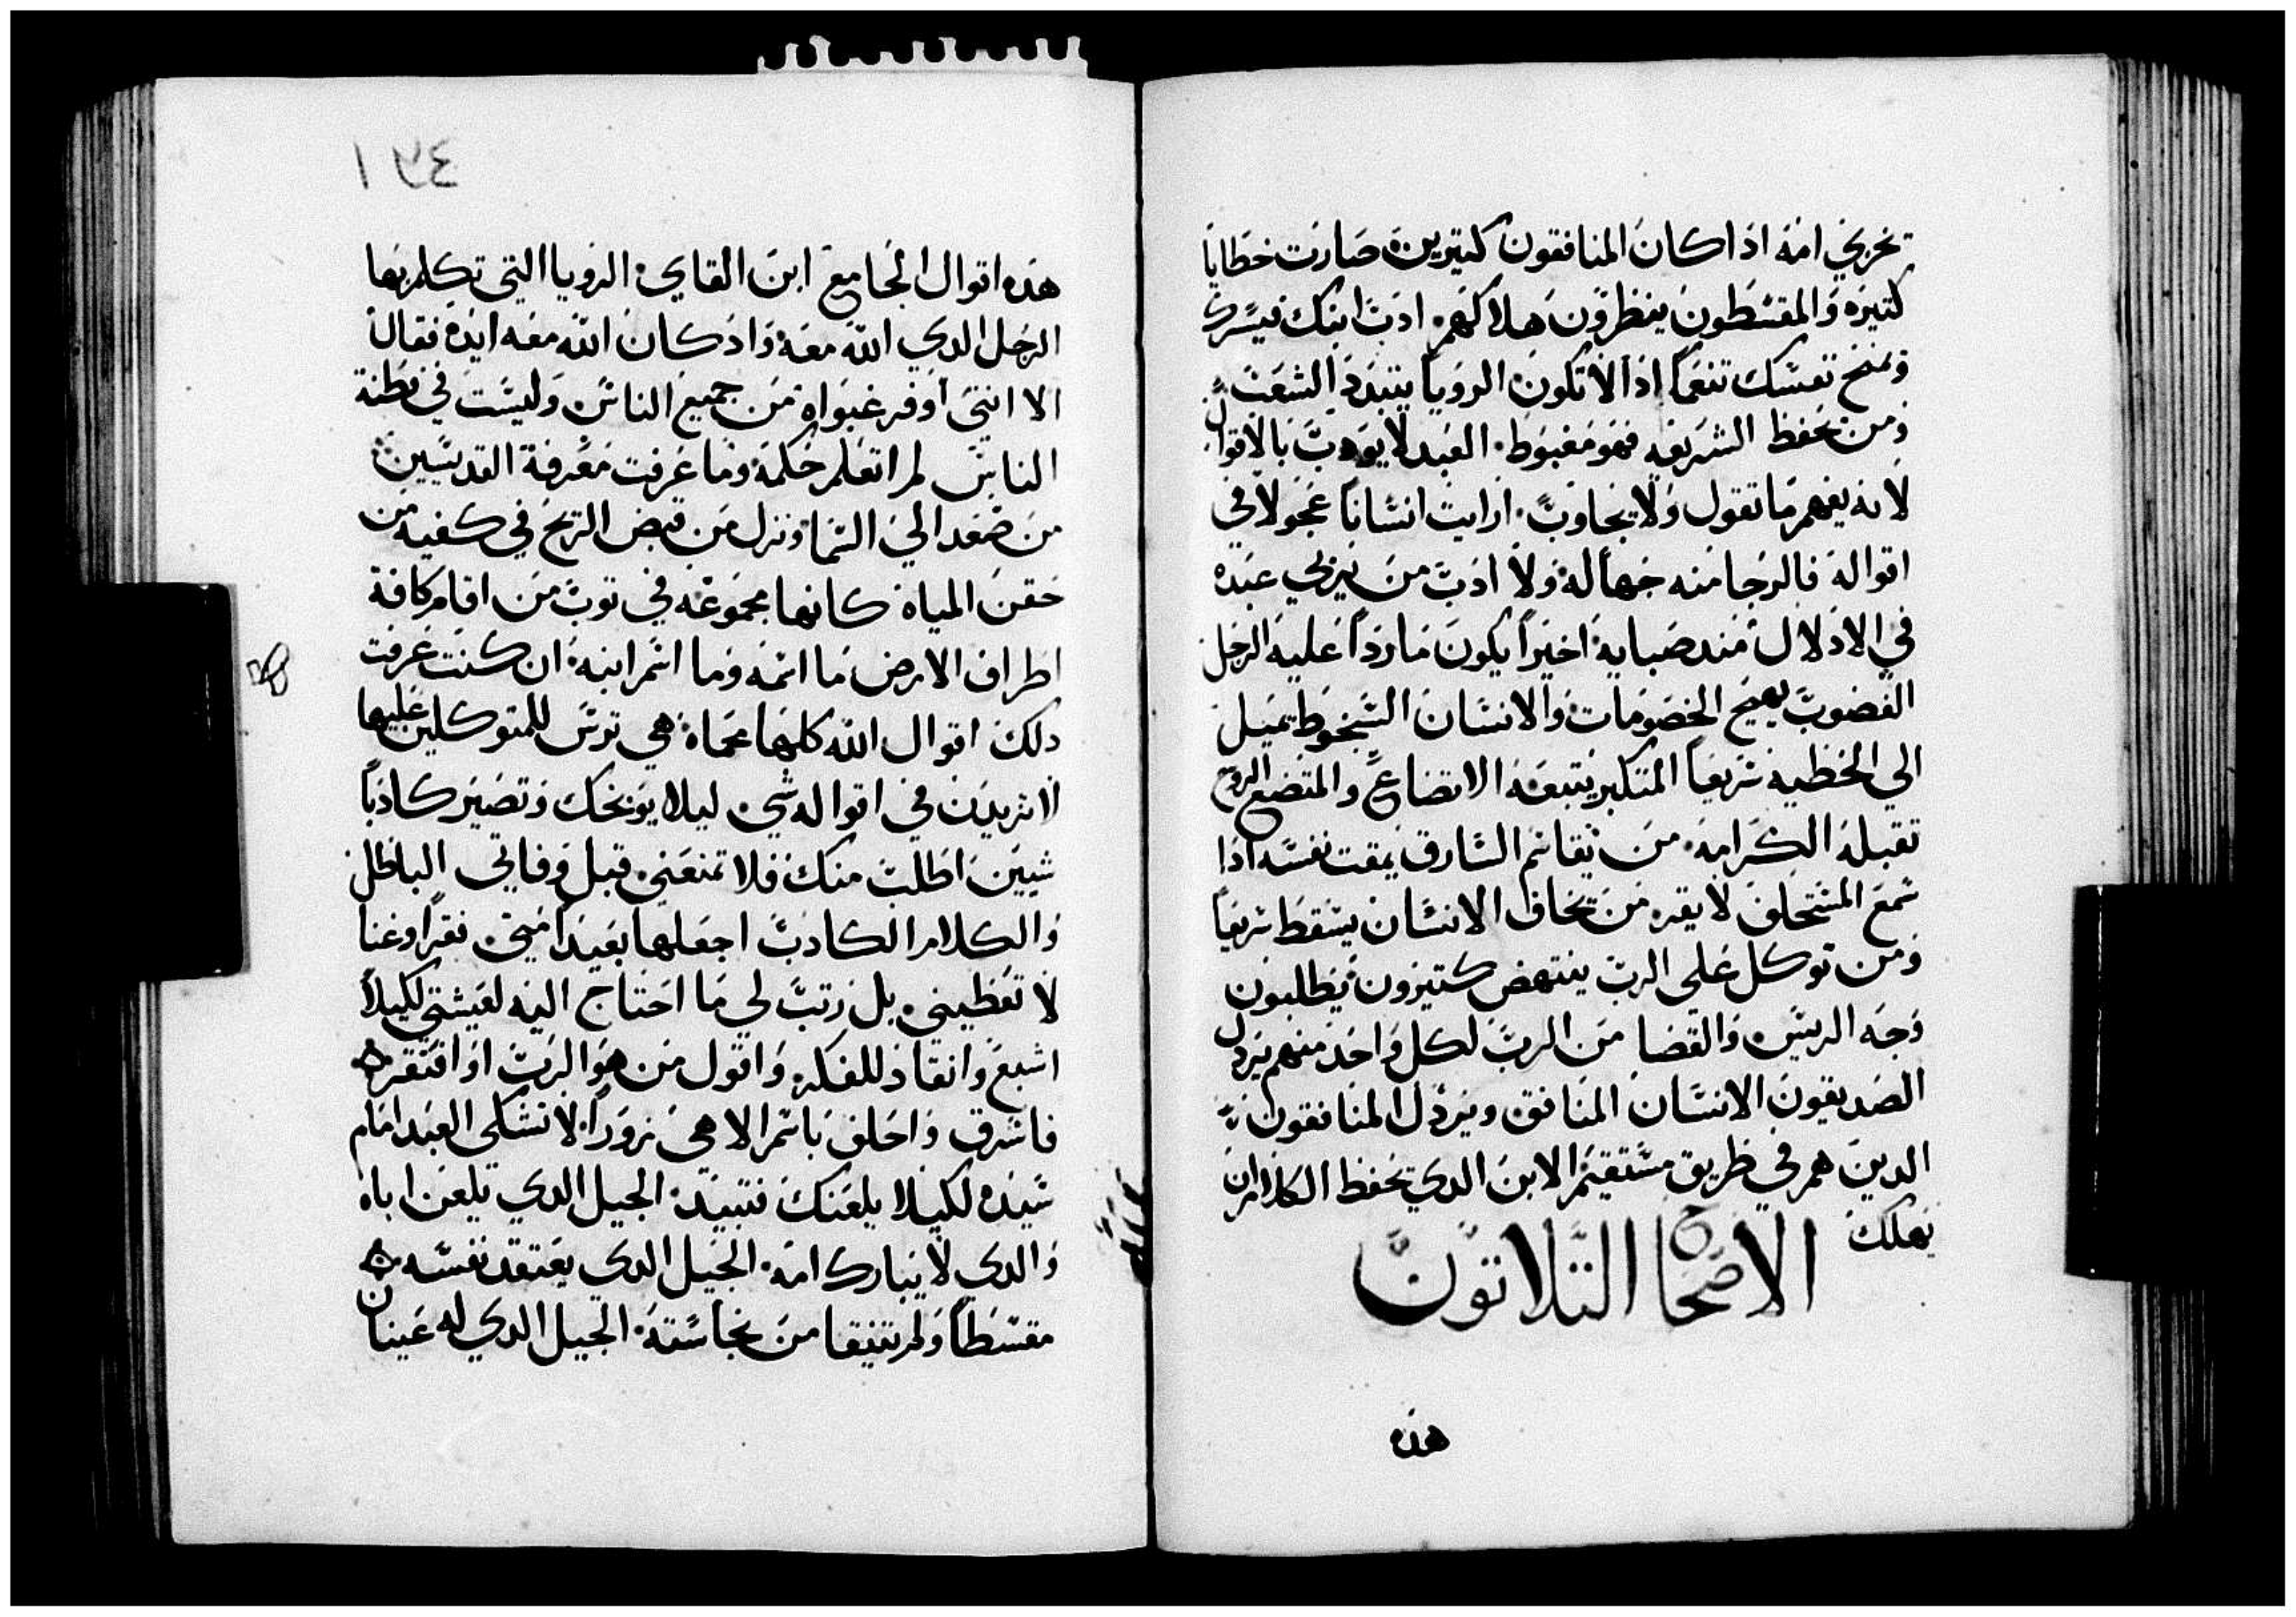 تخزي امه اذا كان المنافقون كتيرين صارت خطايا
كتيره والمقسطون ينظرون هلاكهم ادب ابنك فيسرك
ويمنح نفسك تنعما اذا لا تكون الرويا يتبدد الشعب
ومن يحفظ الشريعه فهو مغبوط العبد لا يودب بالاقوال
لانه يفهم ما تقول ولا يجاوب ارايت انسانا عجولا في
اقواله فالرجا منه جهاله ولا ادب من يربي عبده
في الادلال مند صبايه اخيرا يكون ماردا عليه الرجل
الغضوب يهيج الخصومات والانسان السخوط يميل
الي الخطيه سريعا المتكبر يتبعه الاتضاع والمتضع الروح
تقبله الكرامه من يقاسم السارق يمقت نفسه اذا
سمع المستحلف لا يقر من يخاف الانسان يسقط سريعا
ومن توكل علي الرب ينتهض كتيرون يطلبون
وجه الريس والقضا من الرب لكل واحد منهم يردل
الصديقون الانسان المنافق ويردل المنافقون
الدين هم في طريق مستقيم الابن الدي يحفظ الكلام لن
يهلك
الاصحاح التلاتون
هذه
١٣٤
هذه اقوال الجامع ابن القاي الرويا التي تكلم بها
الرجل الدي الله معه واد كان الله معه ايده فقال
الا انني اوفر غبواه من جميع الناس وليست في فطنة
الناس لم اتعلم حكمه وما عرفت معرفة القديسين
من صعد الي السما ونزل من قبض الريح في كفيه من
حقن المياه كانها مجموعه في توب من اقام كافة
اطراف الارض ما اسمه وما اسم ابنه ان كنت عرفت
دلك اقوال الله كلها محماه هي ترس للمتوكلين عليها
لا تزيدن في اقواله شي ليلا يوبخك وتصير كادبا
شيين اطلب منك فلا تمنعني قبل وفاتي الباطل
والكلام الكادب اجعلها بعيدا مني فقرا وغنا
لا تعطيني بل رتب لي ما احتاج اليه لعيشتي لكيلا
اشبع وانقاد للفكر واقول من هو الرب او افتقر
فاسرق واحلف باسم الاهي زورا لا تشكي العبد امام
سيده لكيلا يلعنك فتبيد الجيل الدي يلعن اباه
والدي لا يبارك امه الجيل الدي يعتقد نفسه
مقسطا ولم يتنقا من نجاسته الجيل الدي له عينان